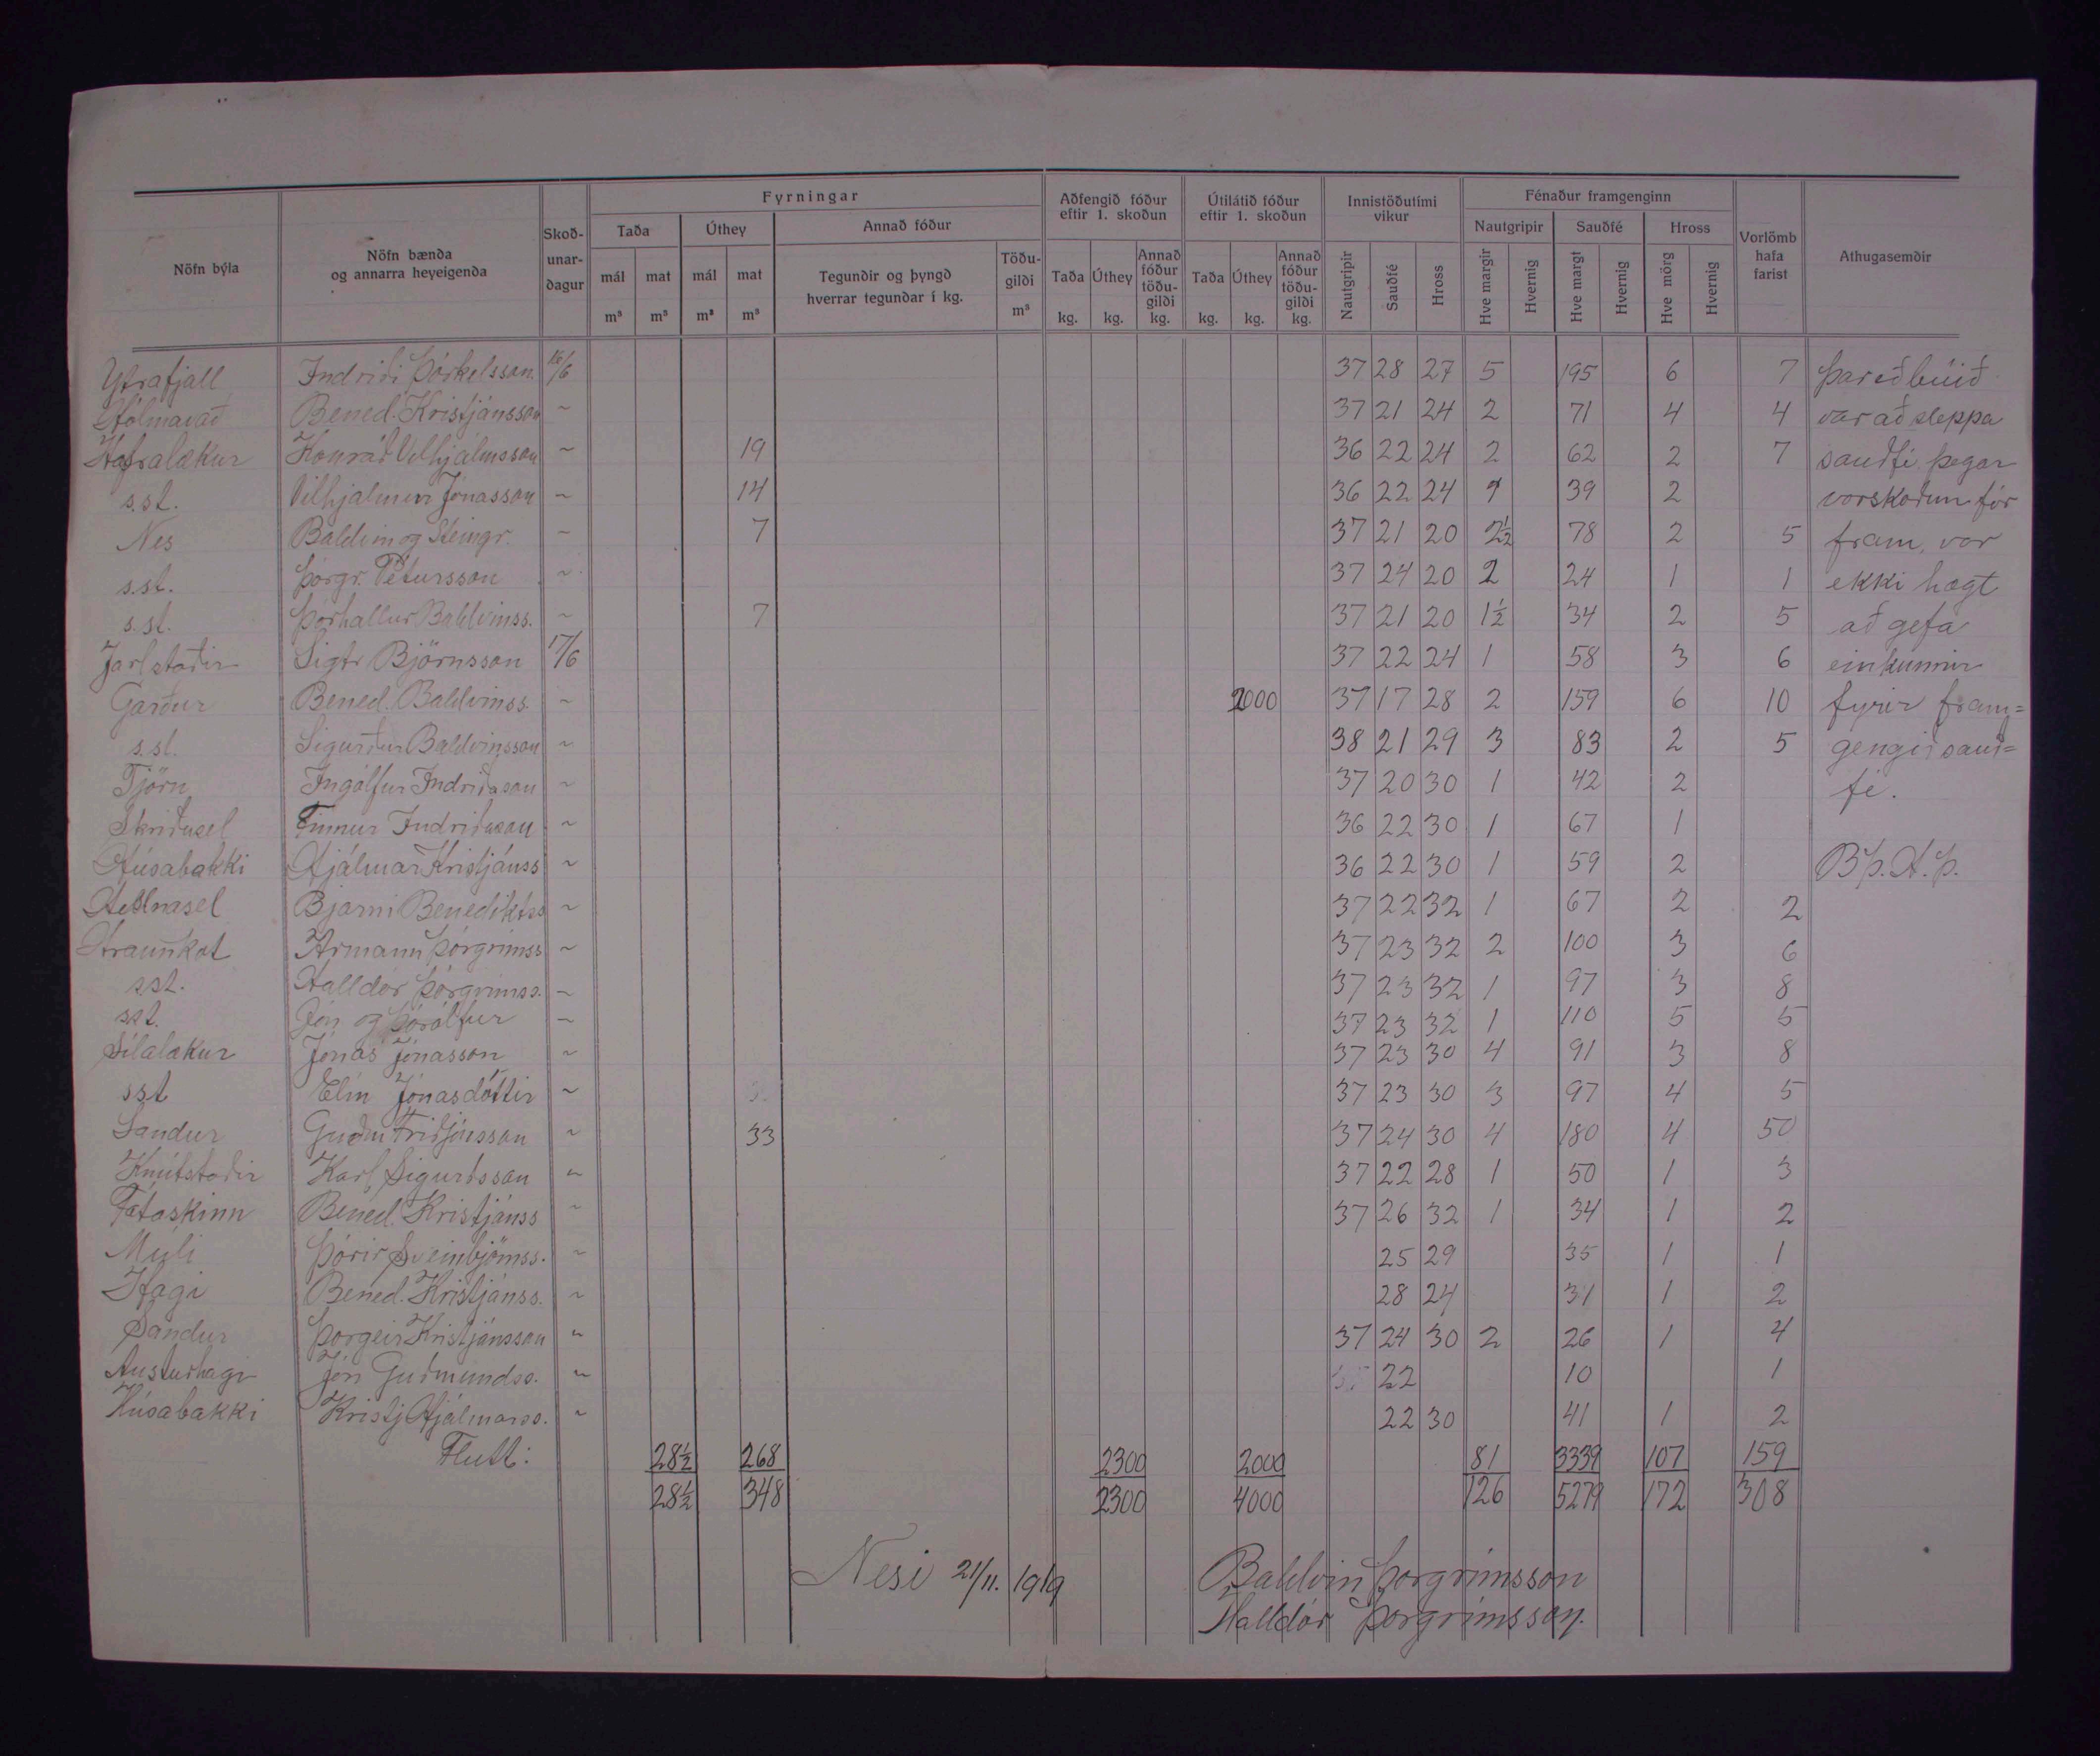 Nöfn býla
Nöfn bænda og annarra heyeigenda
Skoð- unar- dagur
Fyrningar
Taða
Úthey
Annað fóður
mál m³
mat m³
mál m³
mat m³
Tegundir og þyngd hverrar tegundar í kg.
Töðu- gildi m³
Aðfengið fóður eftir 1. skoðun
Taða kg.
Úthey kg.
Annað fóður töðu- gildi kg.
Útilátið fóður eftir 1. skoðun
Taða kg.
Úthey kg.
Annað fóður töðu- gildi kg.
Innistöðutími vikur
Nautgripir
Sauðfé
Hross
Fénaður framgenginn
Nautgripir
Sauðfé
Hross
Hve margir
Hvernig
Hve margt
Hvernig
Hve mörg
Hvernig
Vorlömb hafa farist
Athugasemdir
Ytrafjall Indriði Þórkelsson. 16/6 37 28 27 5 195 6 7 Þareð búið
Hólmavað Bened. Kristjánsson ~ 37 21 24 2 71 4 4 var að sleppa
Hafralækur Konráð Vilhjálmsson ~ 19 36 22 24 2 62 2 7 sauðfé þegar
s.st. Vilhjálmur Jónasson ~ 14 36 22 24 1 39 2 vorskoðun fór
Nes Baldvin og Steingr. ~ 7 37 21 20 2½ 78 2 5 fram, var
s.st. Þorgr. Pétursson ~ 37 24 20 2 24 1 1 ekki hægt
s.st. Þórhallur Baldvinss. ~ 7 37 21 20 1½ 34 2 5 að gefa
Jarlstaðir Sigtr Björnsson 17/6 37 22 24 1 58 3 6 einkunnir
Garður Bened. Baldvinss. ~ 2000 37 17 28 2 159 6 10 fyrir fram=
s.st. Sigurður Baldvinsson ~ 38 21 29 3 83 2 5 gengið sauð=
Tjörn Ingólfur Indriðason ~ 37 20 30 1 42 2 fé.
Skriðusel Finnur Indriðason ~ 36 22 30 1 67 1
Húsabakki Hjálmar Kristjánss ~ 36 22 30 1 59 2 B.Þ. H.Þ.
Hellnasel Bjarni Benediktss ~ 37 22 32 1 67 2 2
Hraunkot Armann Þórgrímss ~ 37 23 32 2 100 3 6
sst. Halldór Þórgrímss. ~ 37 23 32 1 97 3 8
sst. Jón og Þórólfur ~ 37 23 32 1 110 5 5
Sílalækur Jónas Jónasson ~ 37 23 30 4 91 3 8
sst Elín Jónasdóttir ~ 37 23 30 3 97 4 5
Sandur Guðm Friðjónsson ~ 33 37 24 30 4 180 4 50
Knútstaðir Karl Sigurðsson ~ 37 22 28 1 50 1 3
Tátaskinn Bened. Kristjánss ~ 37 26 32 1 34 1 2
Múli Þórir Sveinbjörnss. ~ 25 29 35 1 1
Hagi Bened. Kristjánss. ~ 28 24 31 1 2
Sandur Þorgeir Kristjánsson ~ 37 24 30 2 26 1 4
Austurhagi Jón Guðmundss. ~ 22 10 1
Húsabakki Kristj Hjálmarss. ~ 22 30 41 1 2
Flutt: 28½ 268 2300 2000 81 3339 107 159
28½ 348 2300 4000 126 5279 172 308
Nesi 21/11. 1919 Baldvin Þorgrímsson
Halldór Þorgrímsson.